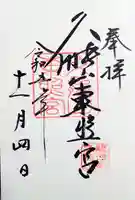 奉拝
久能山東照宮
令和
十一月四日